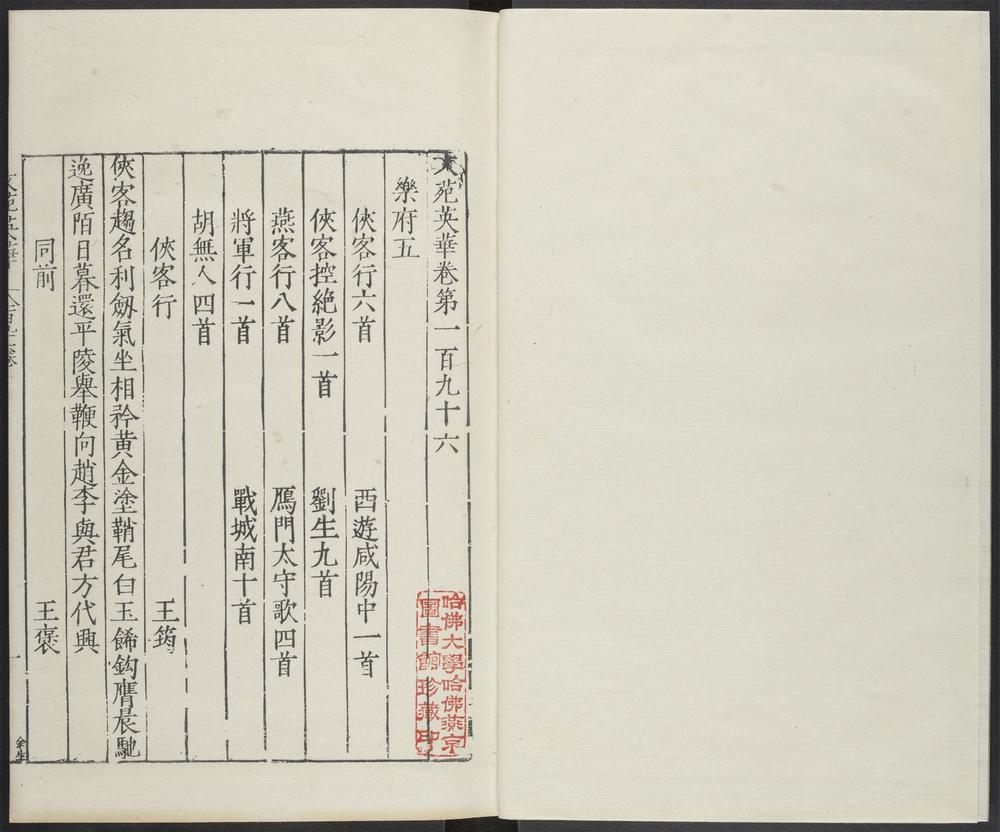 文苑英華卷第一百九十六
樂府五
俠客行六首 西遊咸陽中一首
俠客控絶影一首 劉生九首
燕客行八首 鴈門太守歌四首
將軍行一首 戰城南十首
胡無人四首
俠客行 王筠
俠客趨名利劔氣坐相矜黃金塗鞘尾白玉餙鈎膺晨馳
逸廣陌日暮還平陵舉鞭向趙李與君方代興
同前 王褒
一
哈佛大學哈佛燕京
圖書館珍藏印